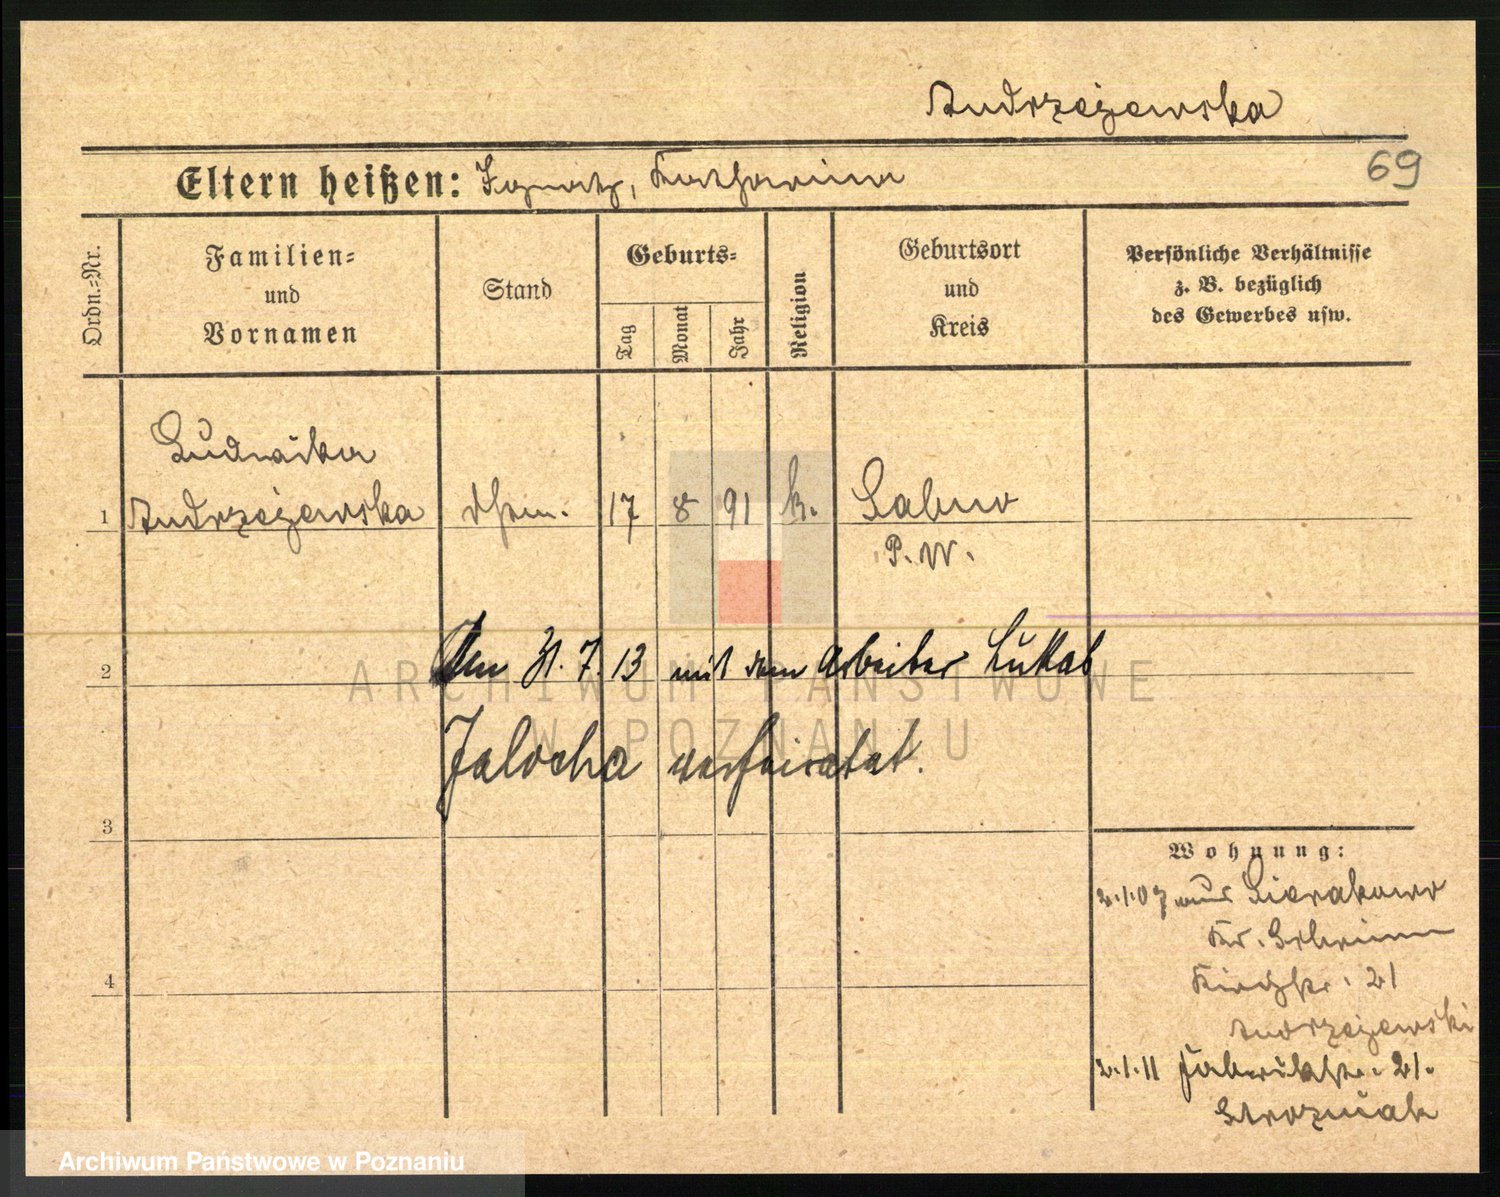 Andrzejewska
Eltern heißen: Ignatz, Katharina
69
Ordn.-Nr.
Familien-
und
Vornamen
Stand
Geburts-
Tag
Monat
Jahr
Religion
Geburtsort
und
Kreis
Persönliche Verhältnisse
z. B. bezüglich
des Gewerbes usw.
Ludwika
1 Andrzejewska 17 8 91 k.
P. W.
2 Den 31. 7. 13 mit dem Arbeiter Lukas
Jalocha verheiratet.
3
Wohnung:
2.1.07 aus Sierakowo
Kr. Schrimm
4 Kirchstr. 21
Andrzejewski
2.1.11 Fabrikstr. 21.
ARCHIWUM PAŃSTWOWE
W POZNANIU
Archiwum Państwowe w Poznaniu